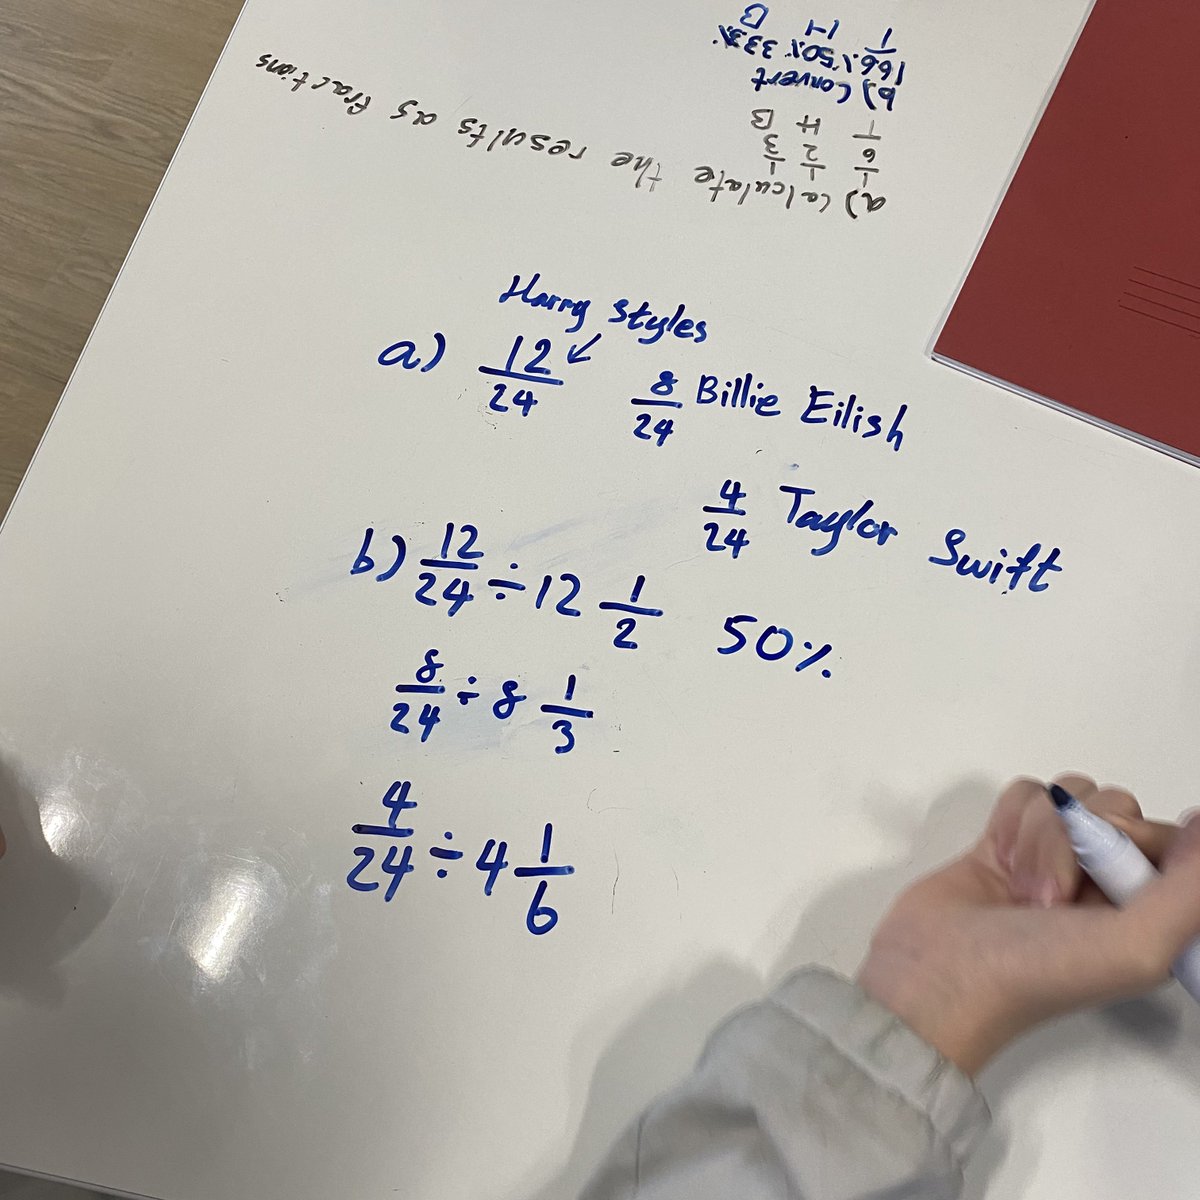 a) Calculate the results as fractions
1/6 1/2 1/3
T H B
b) Convert
166% 50% 333%
T H B
Harry Styles
a) 12/24 8/24 Billie Eilish
4/24 Taylor Swift
b) 12/24 ÷ 12 1/2 50%
8/24 ÷ 8 1/3
4/24 ÷ 4 1/6